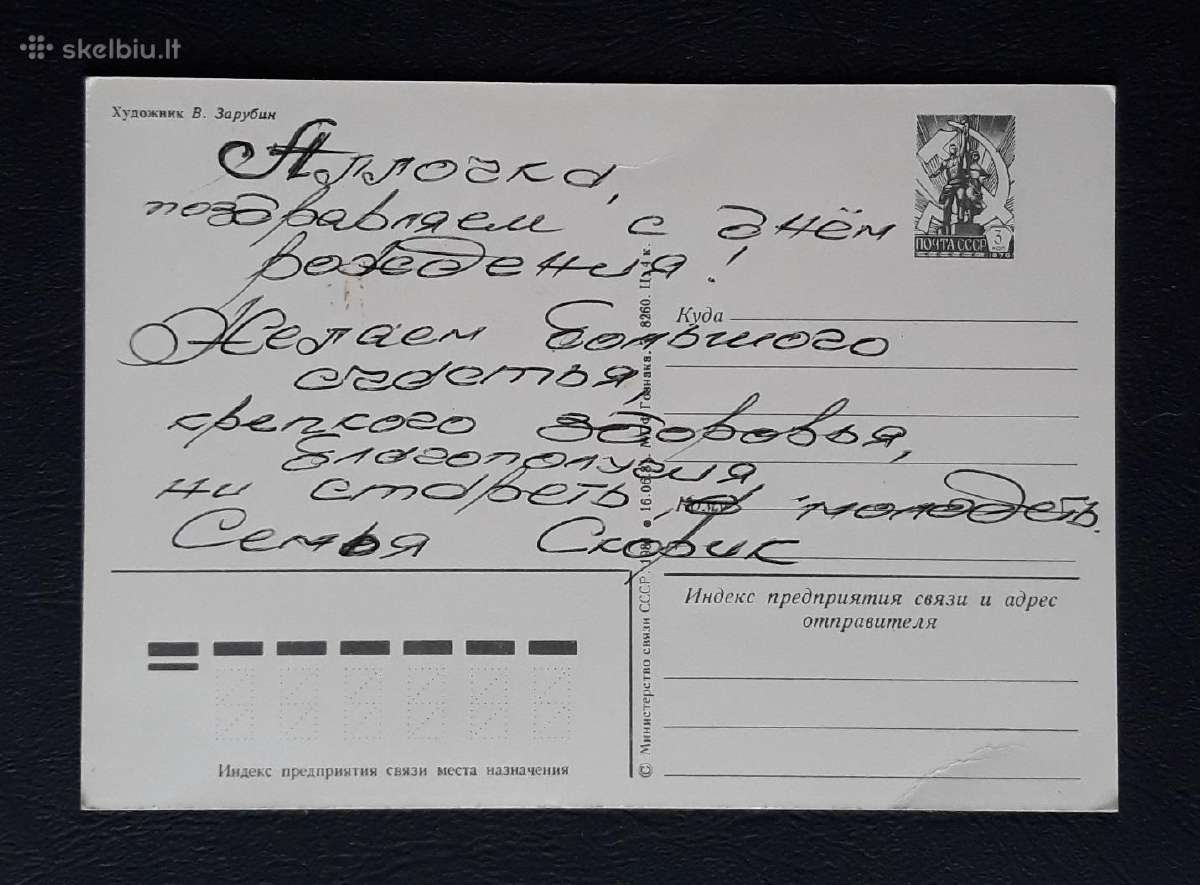 skelbiu.lt
Художник В. Зарубин
Аллочка,
поздравляем с днём
рождения!
Желаем большого
счастья,
крепкого здоровья,
благополучия,
ни стареть, а молодеть.
Семья Скорик
ПОЧТА СССР
3
КОП
1976
Куда
Кому
Индекс предприятия связи и адрес
отправителя
Индекс предприятия связи места назначения
© Министерство связи СССР. 16.06.8 Гознака. 8260. Ц. 4 к.